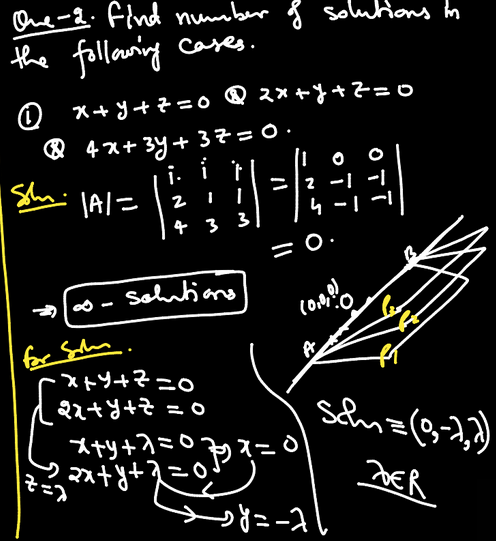 Que-2. Find number of solutions in
the following cases.
① x+y+z=0 & 2x+y+z=0
& 4x+3y+3z=0.
Soln. |A| = | 1 1 1 | = | 1 0 0 |
| 2 1 1 | | 2 -1 -1 |
| 4 3 3 | | 4 -1 -1 |
= 0.
→ ∞ - solutions
for soln.
x+y+z=0
2x+y+z=0
x+y+λ=0 x=0
z=λ 2x+y+λ=0
→ y=-λ
B
(0,0,0)
A
P3
P2
P1
Soln ≡ (0,-λ,λ)
λ∈R